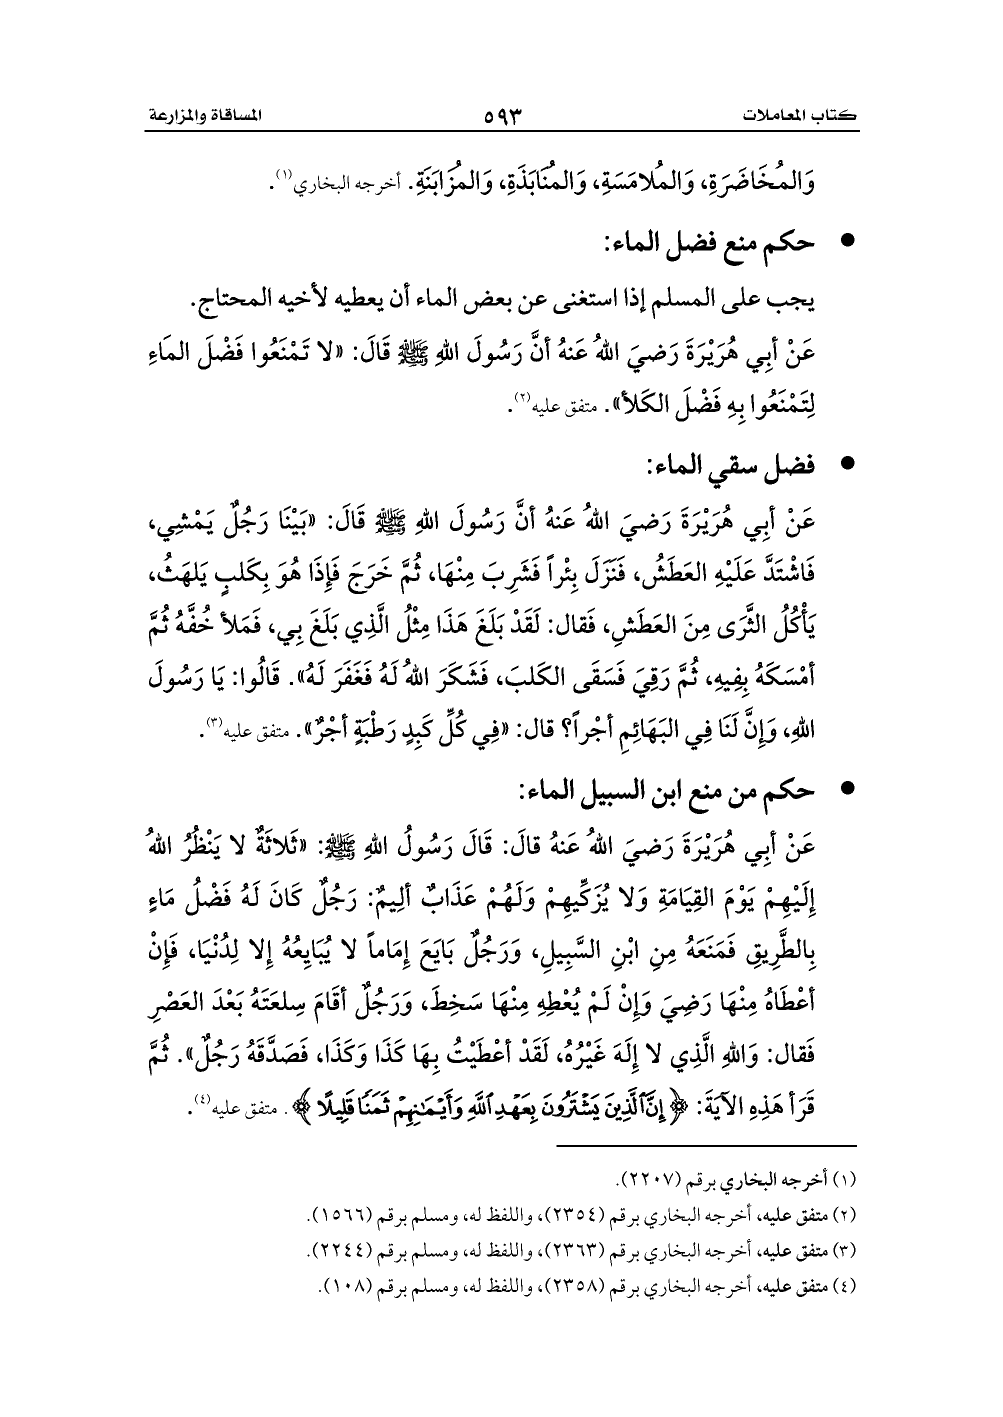 كتاب المعاملات ٥٩٣ المساقاة والمزارعة
وَالمُخَاضَرَةِ، وَالمُلامَسَةِ، وَالمُنَابَذَةِ، وَالمُزَابَنَةِ. أخرجه البخاري(١).
● حكم منع فضل الماء:
يجب على المسلم إذا استغنى عن بعض الماء أن يعطيه لأخيه المحتاج.
عَنْ أبِي هُرَيْرَةَ رَضيَ اللهُ عَنهُ أنَّ رَسُولَ اللهِ ﷺ قَالَ: «لا تَمْنَعُوا فَضْلَ المَاءِ
لِتَمْنَعُوا بِهِ فَضْلَ الكَلأ». متفق عليه(٢).
● فضل سقي الماء:
عَنْ أبِي هُرَيْرَةَ رَضيَ اللهُ عَنهُ أنَّ رَسُولَ اللهِ ﷺ قَالَ: «بَيْنَا رَجُلٌ يَمْشِي،
فَاشْتَدَّ عَلَيْهِ العَطَشُ، فَنَزَلَ بِئْراً فَشَرِبَ مِنْهَا، ثُمَّ خَرَجَ فَإِذَا هُوَ بِكَلبٍ يَلهَثُ،
يَأْكُلُ الثَّرَى مِنَ العَطَشِ، فَقال: لَقَدْ بَلَغَ هَذَا مِثْلُ الَّذِي بَلَغَ بِي، فَمَلأ خُفَّهُ ثُمَّ
أمْسَكَهُ بِفِيهِ، ثُمَّ رَقِيَ فَسَقَى الكَلبَ، فَشَكَرَ اللهُ لَهُ فَغَفَرَ لَهُ». قَالُوا: يَا رَسُولَ
اللهِ، وَإِنَّ لَنَا فِي البَهَائِمِ أجْراً؟ قال: «فِي كُلِّ كَبِدٍ رَطْبَةٍ أجْرٌ». متفق عليه(٣).
● حكم من منع ابن السبيل الماء:
عَنْ أبِي هُرَيْرَةَ رَضيَ اللهُ عَنهُ قالَ: قَالَ رَسُولُ اللهِ ﷺ: «ثَلاثَةٌ لا يَنْظُرُ اللهُ
إِلَيْهِمْ يَوْمَ القِيَامَةِ وَلا يُزَكِّيهِمْ وَلَهُمْ عَذَابٌ ألِيمٌ: رَجُلٌ كَانَ لَهُ فَضْلُ مَاءٍ
بِالطَّرِيقِ فَمَنَعَهُ مِنِ ابْنِ السَّبِيلِ، وَرَجُلٌ بَايَعَ إِمَاماً لا يُبَايِعُهُ إِلا لِدُنْيَا، فَإِنْ
أعْطَاهُ مِنْهَا رَضِيَ وَإِنْ لَمْ يُعْطِهِ مِنْهَا سَخِطَ، وَرَجُلٌ أقَامَ سِلعَتَهُ بَعْدَ العَصْرِ
فَقال: وَاللهِ الَّذِي لا إِلَهَ غَيْرُهُ، لَقَدْ أعْطَيْتُ بِهَا كَذَا وَكَذَا، فَصَدَّقَهُ رَجُلٌ». ثُمَّ
قَرَأ هَذِهِ الآيَةَ: ﴿إِنَّ ٱلَّذِينَ يَشْتَرُونَ بِعَهْدِ ٱللَّهِ وَأَيْمَٰنِهِمْ ثَمَنًا قَلِيلًا﴾. متفق عليه(٤).
(١) أخرجه البخاري برقم (٢٢٠٧).
(٢) متفق عليه، أخرجه البخاري برقم (٢٣٥٤)، واللفظ له، ومسلم برقم (١٥٦٦).
(٣) متفق عليه، أخرجه البخاري برقم (٢٣٦٣)، واللفظ له، ومسلم برقم (٢٢٤٤).
(٤) متفق عليه، أخرجه البخاري برقم (٢٣٥٨)، واللفظ له، ومسلم برقم (١٠٨).